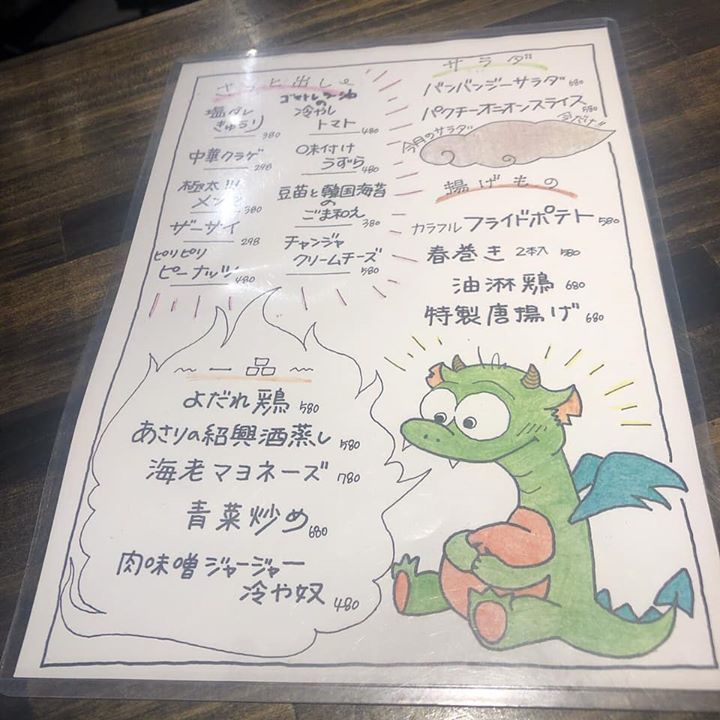 サッと出し
塩ダレ
きゅうり 380
中華クラゲ 298
極太!!!
メンマ 380
ザーサイ 298
ピリピリ
ピーナッツ 480
の
冷やし
トマト 480
味付け
うずら 480
豆苗と韓国海苔
の
ごま和え 380
チャンジャ
クリームチーズ 580
サラダ
バンバンジーサラダ 580
パクチーオニオンスライス 580
今月のサラダ
今だけ!!
揚げもの
カラフルフライドポテト 580
春巻き 2本入 580
油淋鶏 680
特製唐揚げ 680
〜一品〜
よだれ鶏 580
あさりの紹興酒蒸し 580
海老マヨネーズ 780
青菜炒め 680
肉味噌ジャージャー
冷や奴 480